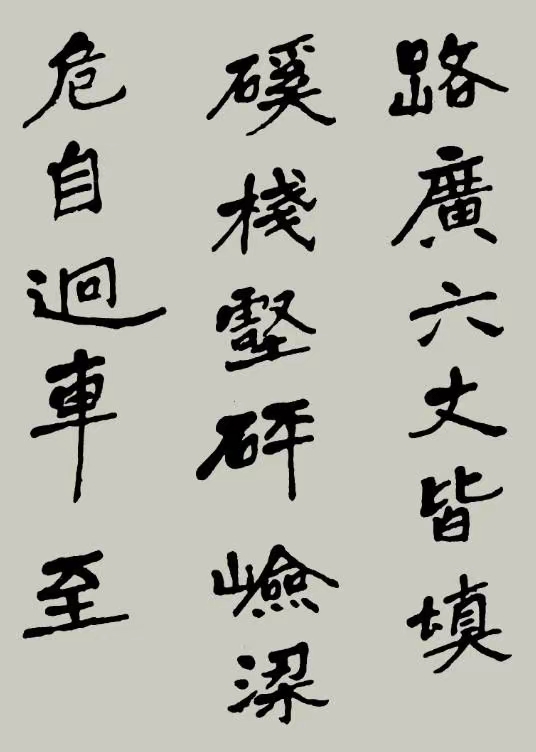 路廣六丈皆填
磎棧壑砰嶮梁
危自迴車至